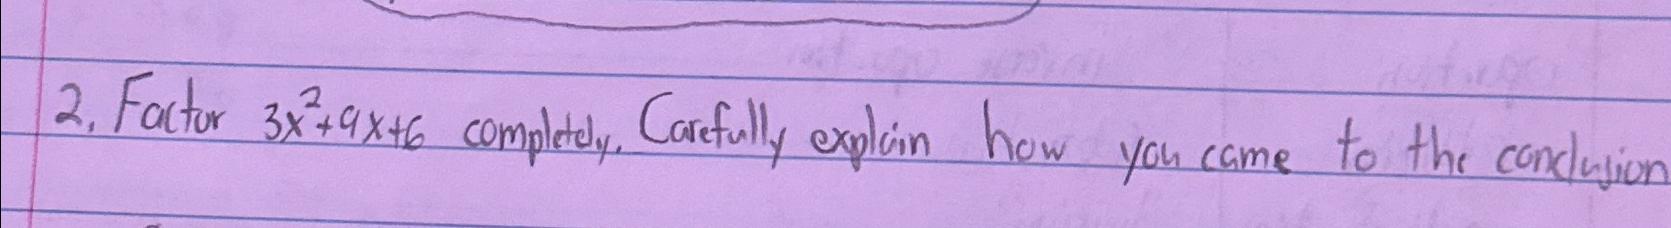 2. Factor 3x²+9x+6 completely. Carefully explain how you came to the conclusion